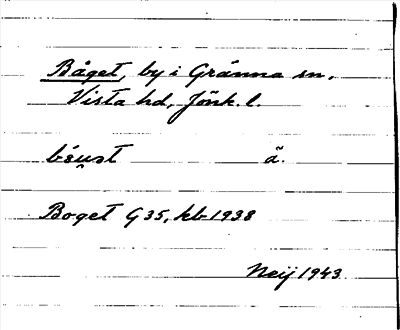 Båget, by i Gränna sn,
Vista hd, Jönk. l.
ä.
Boget G 35, kb 1938
Neij 1943